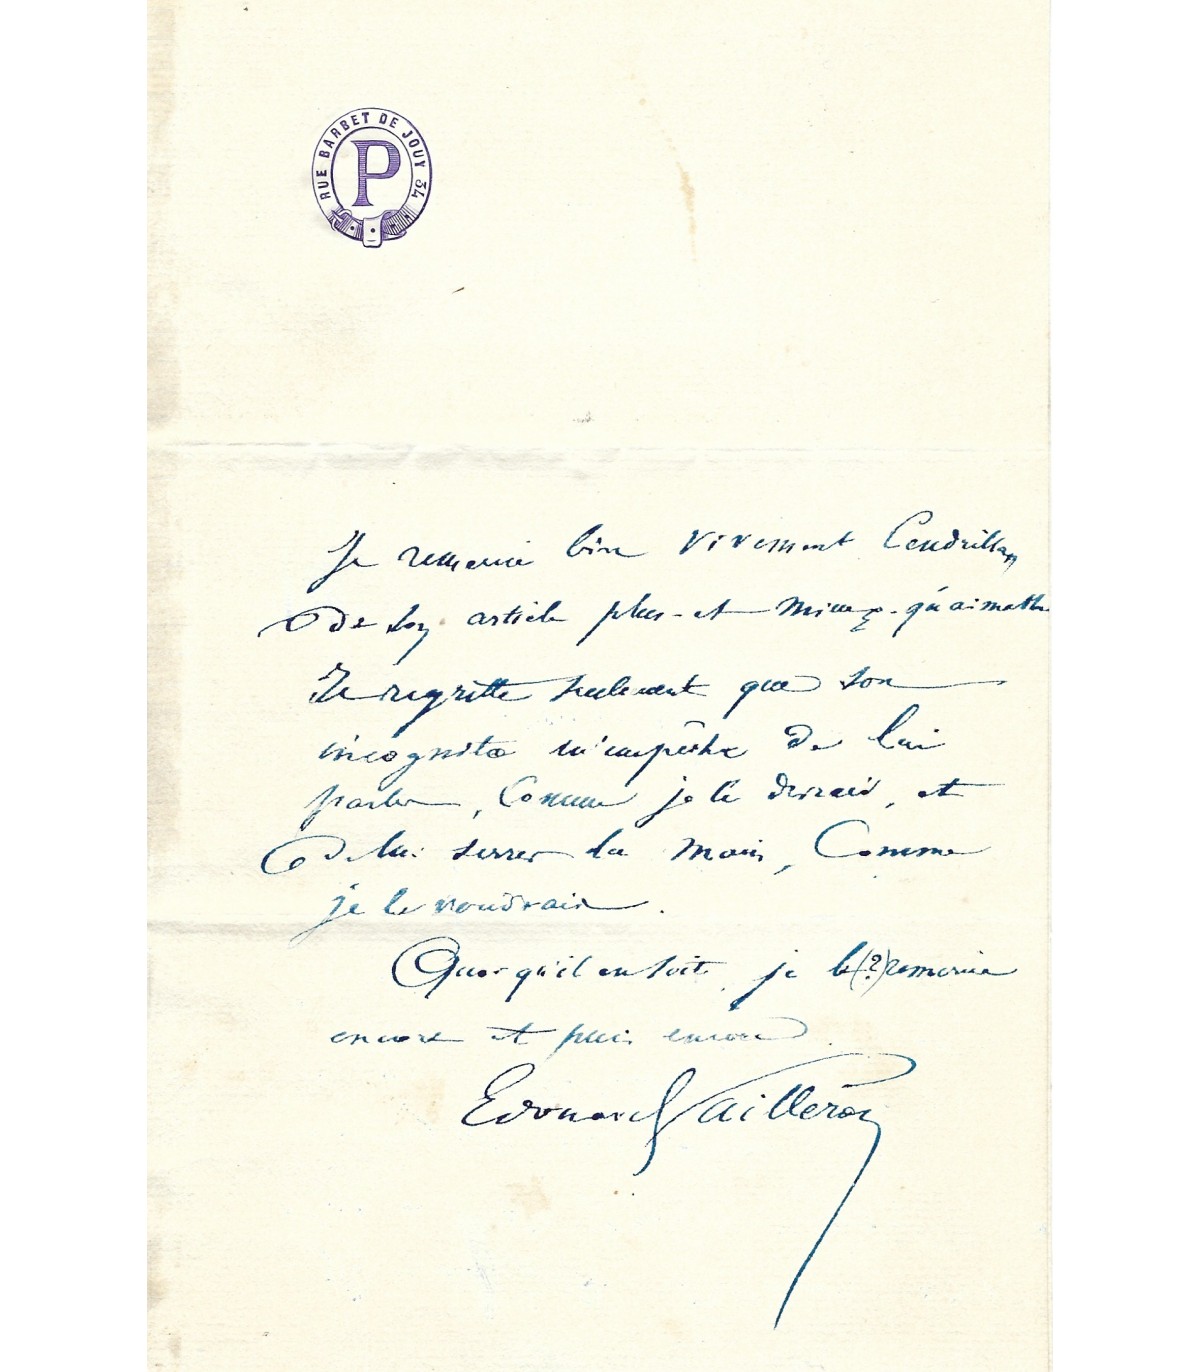 RUE BARBET DE JOUY 34
P
Je remercie bien vivement Cendrillon
de son article plus-et mieux-qu'aimable
Je regrette seulement que son
incognito m'empêche de lui
parler, comme je le devrais, et
de lui serrer la main, comme
je le voudrais.
Quoiqu'il en soit, je le (?) remercie
encore et puis encore.
Edouard Pailleron